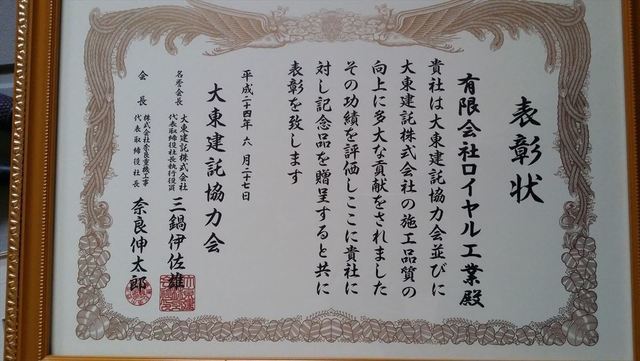 表彰状
有限会社ロイヤル工業殿
貴社は大東建託協力会並びに
大東建託株式会社の施工品質の
向上に多大な貢献をされました
その功績を評価しここに貴社に
対し記念品を贈呈すると共に
表彰を致します
平成二十四年 六月二十七日
大東建託協力会
名誉会長 大東建託株式会社
代表取締役社長執行役員 三鍋伊佐雄
会長 株式会社奈良重機工事
代表取締役社長 奈良伸太郎